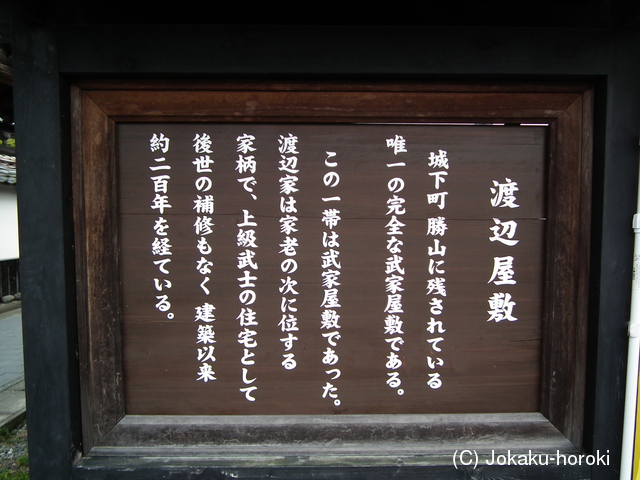 渡辺屋敷
城下町 勝山に残されている
唯一の完全な武家屋敷である。
この一帯は武家屋敷であった。
渡辺家は家老の次に位する
家柄で、上級武士の住宅として
後世の補修もなく 建築以来
約二百年を経ている。
(C) Jokaku-horoki